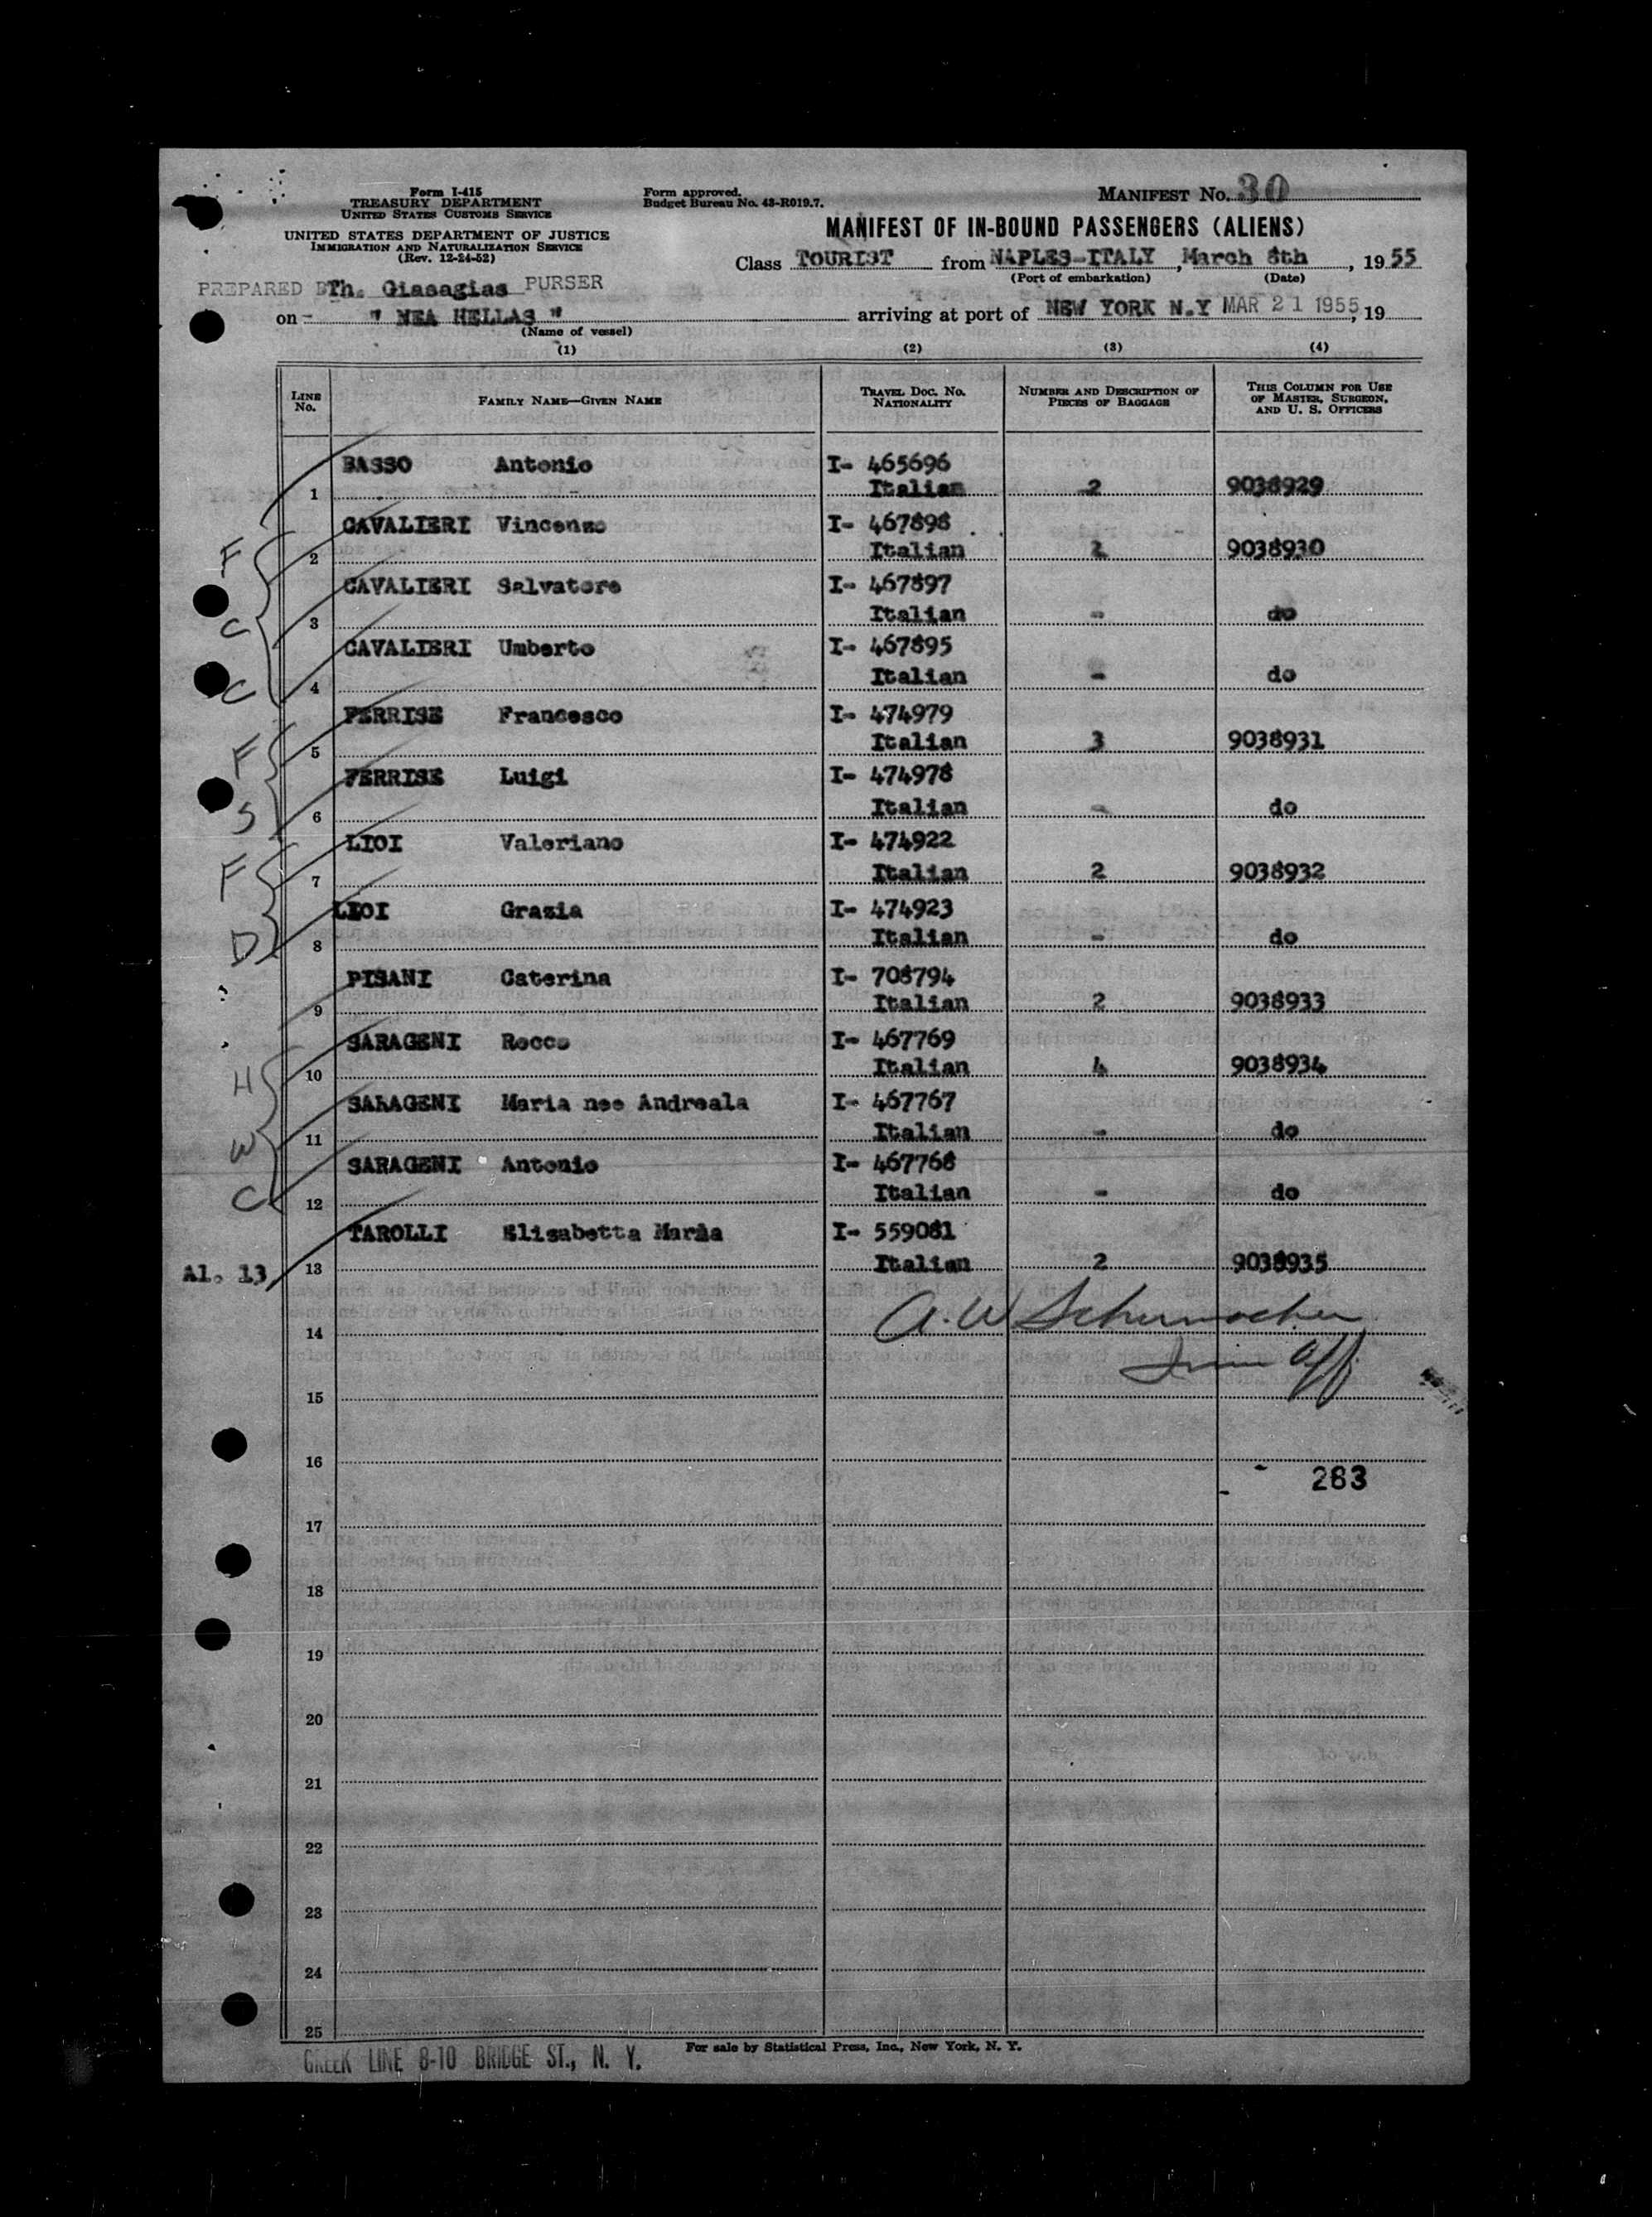 Form I-415
TREASURY DEPARTMENT
UNITED STATES CUSTOMS SERVICE
UNITED STATES DEPARTMENT OF JUSTICE
IMMIGRATION AND NATURALIZATION SERVICE
(Rev. 12-24-52)
Form approved.
Budget Bureau No. 43-R019.7.
MANIFEST NO. 30
MANIFEST OF IN-BOUND PASSENGERS (ALIENS)
Class TOURIST from NAPLES-ITALY, March 8th, 1955
(Port of embarkation) (Date)
PREPARED BY Th. Giasagias PURSER
on - " NEA HELLAS " arriving at port of NEW YORK N.Y MAR 21 1955, 19
(Name of vessel)
(1) (2) (3) (4)
LINE NO. FAMILY NAME—GIVEN NAME TRAVEL DOC. NO. NATIONALITY NUMBER AND DESCRIPTION OF PIECES OF BAGGAGE THIS COLUMN FOR USE OF MASTER, SURGEON, AND U. S. OFFICERS
BASSO Antonio I- 465696
1 Italian 2 9038929
CAVALIERI Vincenzo I- 467898
F 2 Italian 2 9038930
CAVALIERI Salvatore I- 467897
C 3 Italian - do
CAVALIERI Umberto I- 467895
C 4 Italian - do
FERRISE Francesco I- 474979
F 5 Italian 3 9038931
FERRISE Luigi I- 474978
S 6 Italian - do
LIOI Valeriano I- 474922
F 7 Italian 2 9038932
LIOI Grazia I- 474923
D 8 Italian - do
PISANI Caterina I- 708794
9 Italian 2 9038933
SARAGENI Rocco I- 467769
H 10 Italian 4 9038934
SARAGENI Maria nee Andreala I- 467767
W 11 Italian - do
SARAGENI Antonio I- 467768
C 12 Italian - do
TAROLLI Elisabetta Maria I- 559081
Al. 13 13 Italian 2 9038935
14 A. W Schumacher
Imm Off
15
16
283
17
18
19
20
21
22
23
24
25
For sale by Statistical Press, Inc., New York, N. Y.
GREEK LINE 8-10 BRIDGE ST., N. Y.